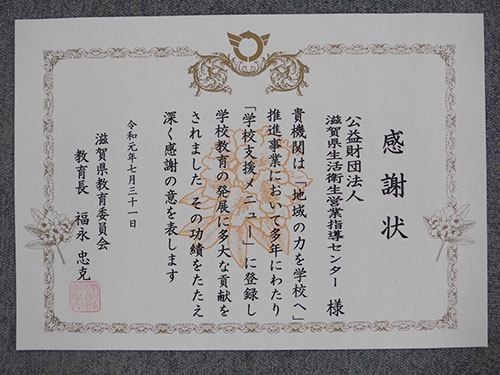 感謝状
公益財団法人
滋賀県生活衛生営業指導センター 様
貴機関は「地域の力を学校へ」
推進事業において多年にわたり
「学校支援メニュー」に登録し
学校教育の発展に多大な貢献を
されました この功績をたたえ
深く感謝の意を表します
令和元年七月三十一日
滋賀県教育委員会
教育長 福永 忠克